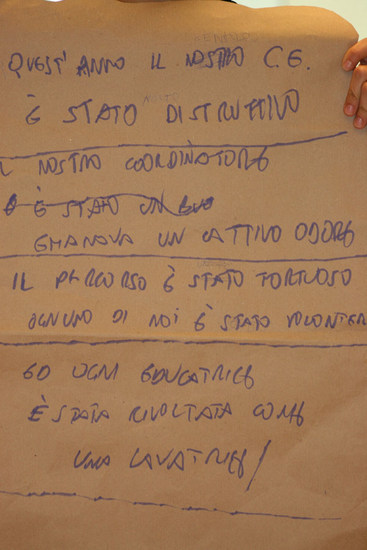 QUEST'ANNO IL NOSTRO C.E.
È STATO DISTRUTTIVO
L NOSTRO COORDINATORE
È STATO UN
EMANAVA UN CATTIVO ODORE
IL PERCORSO È STATO TORTUOSO
OGNUNO DI NOI È STATO VOLONTER
ED OGNI EDUCATRICE
È STATA RIVOLTATA COME
UNA LAVATRICE/